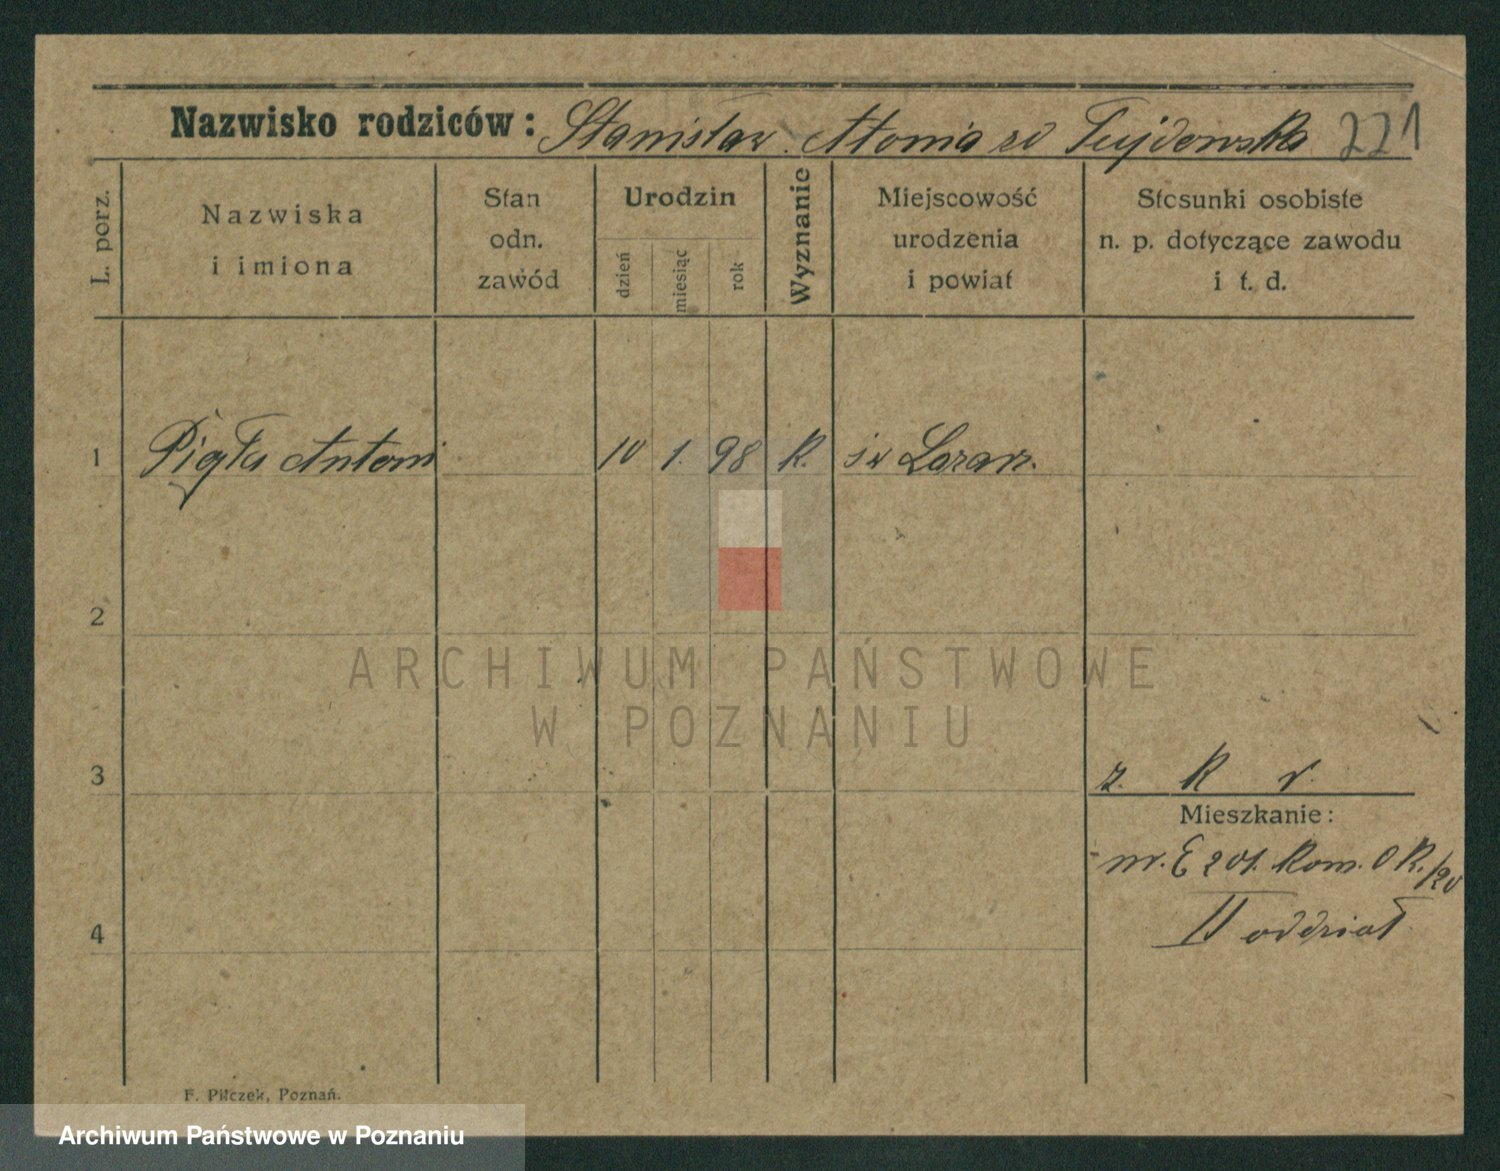 Nazwisko rodziców: Stanisław. 221
L. porz.
Nazwiska
i imiona
Stan
odn.
zawód
Urodzin
dzień
miesiąc
rok
Wyznanie
Miejscowość
urodzenia
i powiat
Stosunki osobiste
n. p. dotyczące zawodu
i t. d.
1 Antoni 10 1. 98 K. św Łazarz.
2
ARCHIWUM PAŃSTWOWE
W POZNANIU
3 z. K r.
Mieszkanie:
nr. E 201. Kom. O K. /20
4 II oddział
F. Pilczek, Poznań.
Archiwum Państwowe w Poznaniu